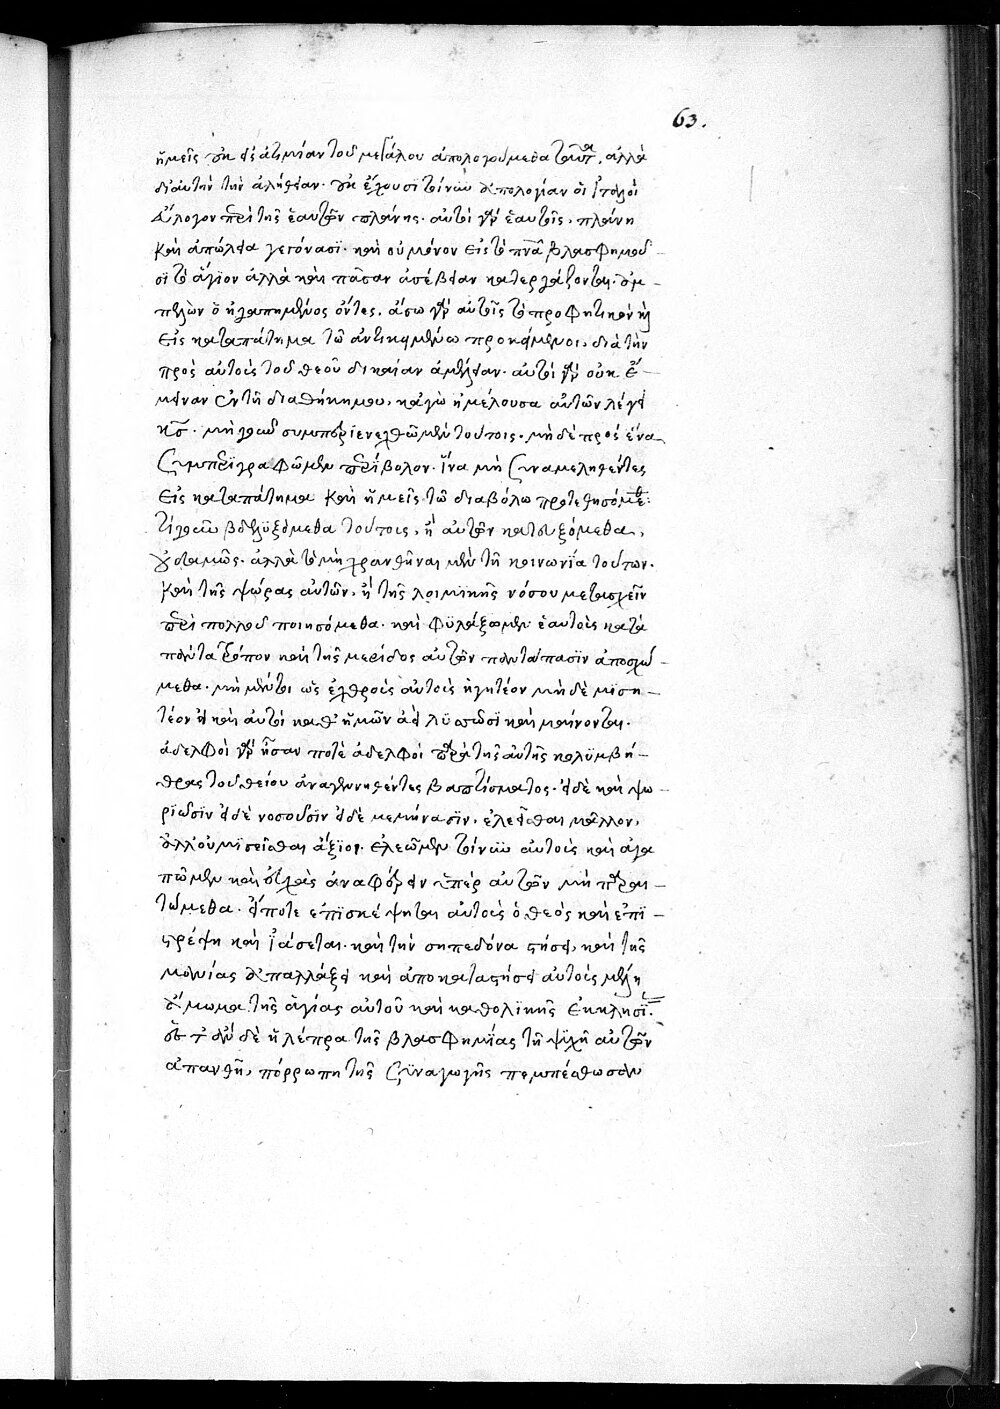 63.
ἡμεῖς οὐκ εἰς ἀτιμίαν τοῦ μεγάλου ἀπολογούμεθα ταῦτα, ἀλλὰ
δι' αὐτὴν τὴν ἀλήθειαν. οὐκ ἔχουσι τοίνυν ἀπολογίαν οἱ ἰταλοὶ
εὔλογον περὶ τῆς ἑαυτῶν πλάνης. αὐτοὶ γὰρ ἑαυτοῖς, πλάνη
καὶ ἀπώλεια γεγόνασϊ. καὶ οὐ μόνον εἰς τὸ πνᾶ βλασφημοῦ-
σϊ τὸ ἅγϊον ἀλλὰ καὶ πᾶσαν ἀσέβειαν κατεργάζονται.
ὁ ἠγαπημένος ὄντες, αὐτοῖς τὸ προφητικὸν
εἰς καταπάτημα τῶ ἀντικειμένω προκείμενοι, διὰ τὴν
πρὸς αὐτοὺς τοῦ θεοῦ δικαίαν ἀμέλειαν. αὐτοὶ γὰρ οὐκ ἔ-
μειναν ἐν τῆ διαθήκη μου, κἀγὼ ἠμέλησα αὐτῶν λέγει
κς. μὴ γοῦν συμπεριενεχθῶμεν τούτοις. μὴ δὲ πρὸς ἕνα
συμπεριγραφῶμεν περίβολον. ἵνα μὴ συναμεληθέντες
εἰς καταπάτημα καὶ ἡμεῖς τῶ διαβόλω προτεθησόμεθα:
τί γοῦν βδελϋξόμεθα τούτοις, ἢ αὐτῶν κατευξόμεθα,
οὐδαμῶς. ἀλλὰ τὸ μὴ χρανθῆναι μὲν τῆ κοινωνΐα τούτων.
καὶ τῆς ψώρας αὐτῶν, ἢ τῆς λοιμϊκῆς νόσου μετασχεῖν
περὶ πολλοῦ ποιησόμεθα. καὶ φϋλάξωμεν ἑαυτοὺς κατὰ
πάντα τρόπον καὶ τῆς μερίδος αὐτῶν πανταπασϊν ἀποσχώ-
μεθα. μὴ μέντοι ὡς ἐχθροὺς αὐτοὺς ἡγητέον μὴ δὲ μϊση-
τέον εἰ καὶ αὐτοὶ καθ' ἡμῶν ἀεὶ λϋττῶσϊ καὶ μαίνονται.
ἀδελφοὶ γὰρ ἦσαν ποτὲ ἀδελφοὶ παρὰ τῆς αὐτῆς κολϋμβή-
θρας τοῦ θείου ἀναγεννηθέντες βαπτίσματος. εἰ δὲ καὶ ψω
ρϊῶσϊν εἰ δὲ νοσοῦσϊν εἰ δὲ μεμήνασϊν, ἐλεεῖσθαι μᾶλλον,
ἀλλ' οὐ μϊσεῖσθαι ἄξϊοι. ἐλεῶμεν τοίνυν αὐτοὺς καὶ ἀγα
πῶμεν καὶ εὐχὰς ἀναφέρειν ὑπὲρ αὐτῶν μὴ παραι-
τώμεθα. εἴποτε ἐπϊσκέψηται αὐτοὺς ὁ θεὸς καὶ ἐπϊ-
στρέψη καὶ ϊάσεται. καὶ τὴν σηπεδόνα στήσει, καὶ τῆς
μανίας ἀπαλλάξει καὶ ἀποκαταστήσει αὐτοὺς μέλη
ἄμωμα τῆς ἁγίας αὐτοῦ καὶ καθολϊκῆς ἐκκλησϊ.
δὲ ἡ λέπρα τῆς βλασφημΐας τῆ ψϋχῆ αὐτῶν
ἀπανθῆ, πόρρω πη τῆς σϋναγωγῆς πεμπέσθωσαν